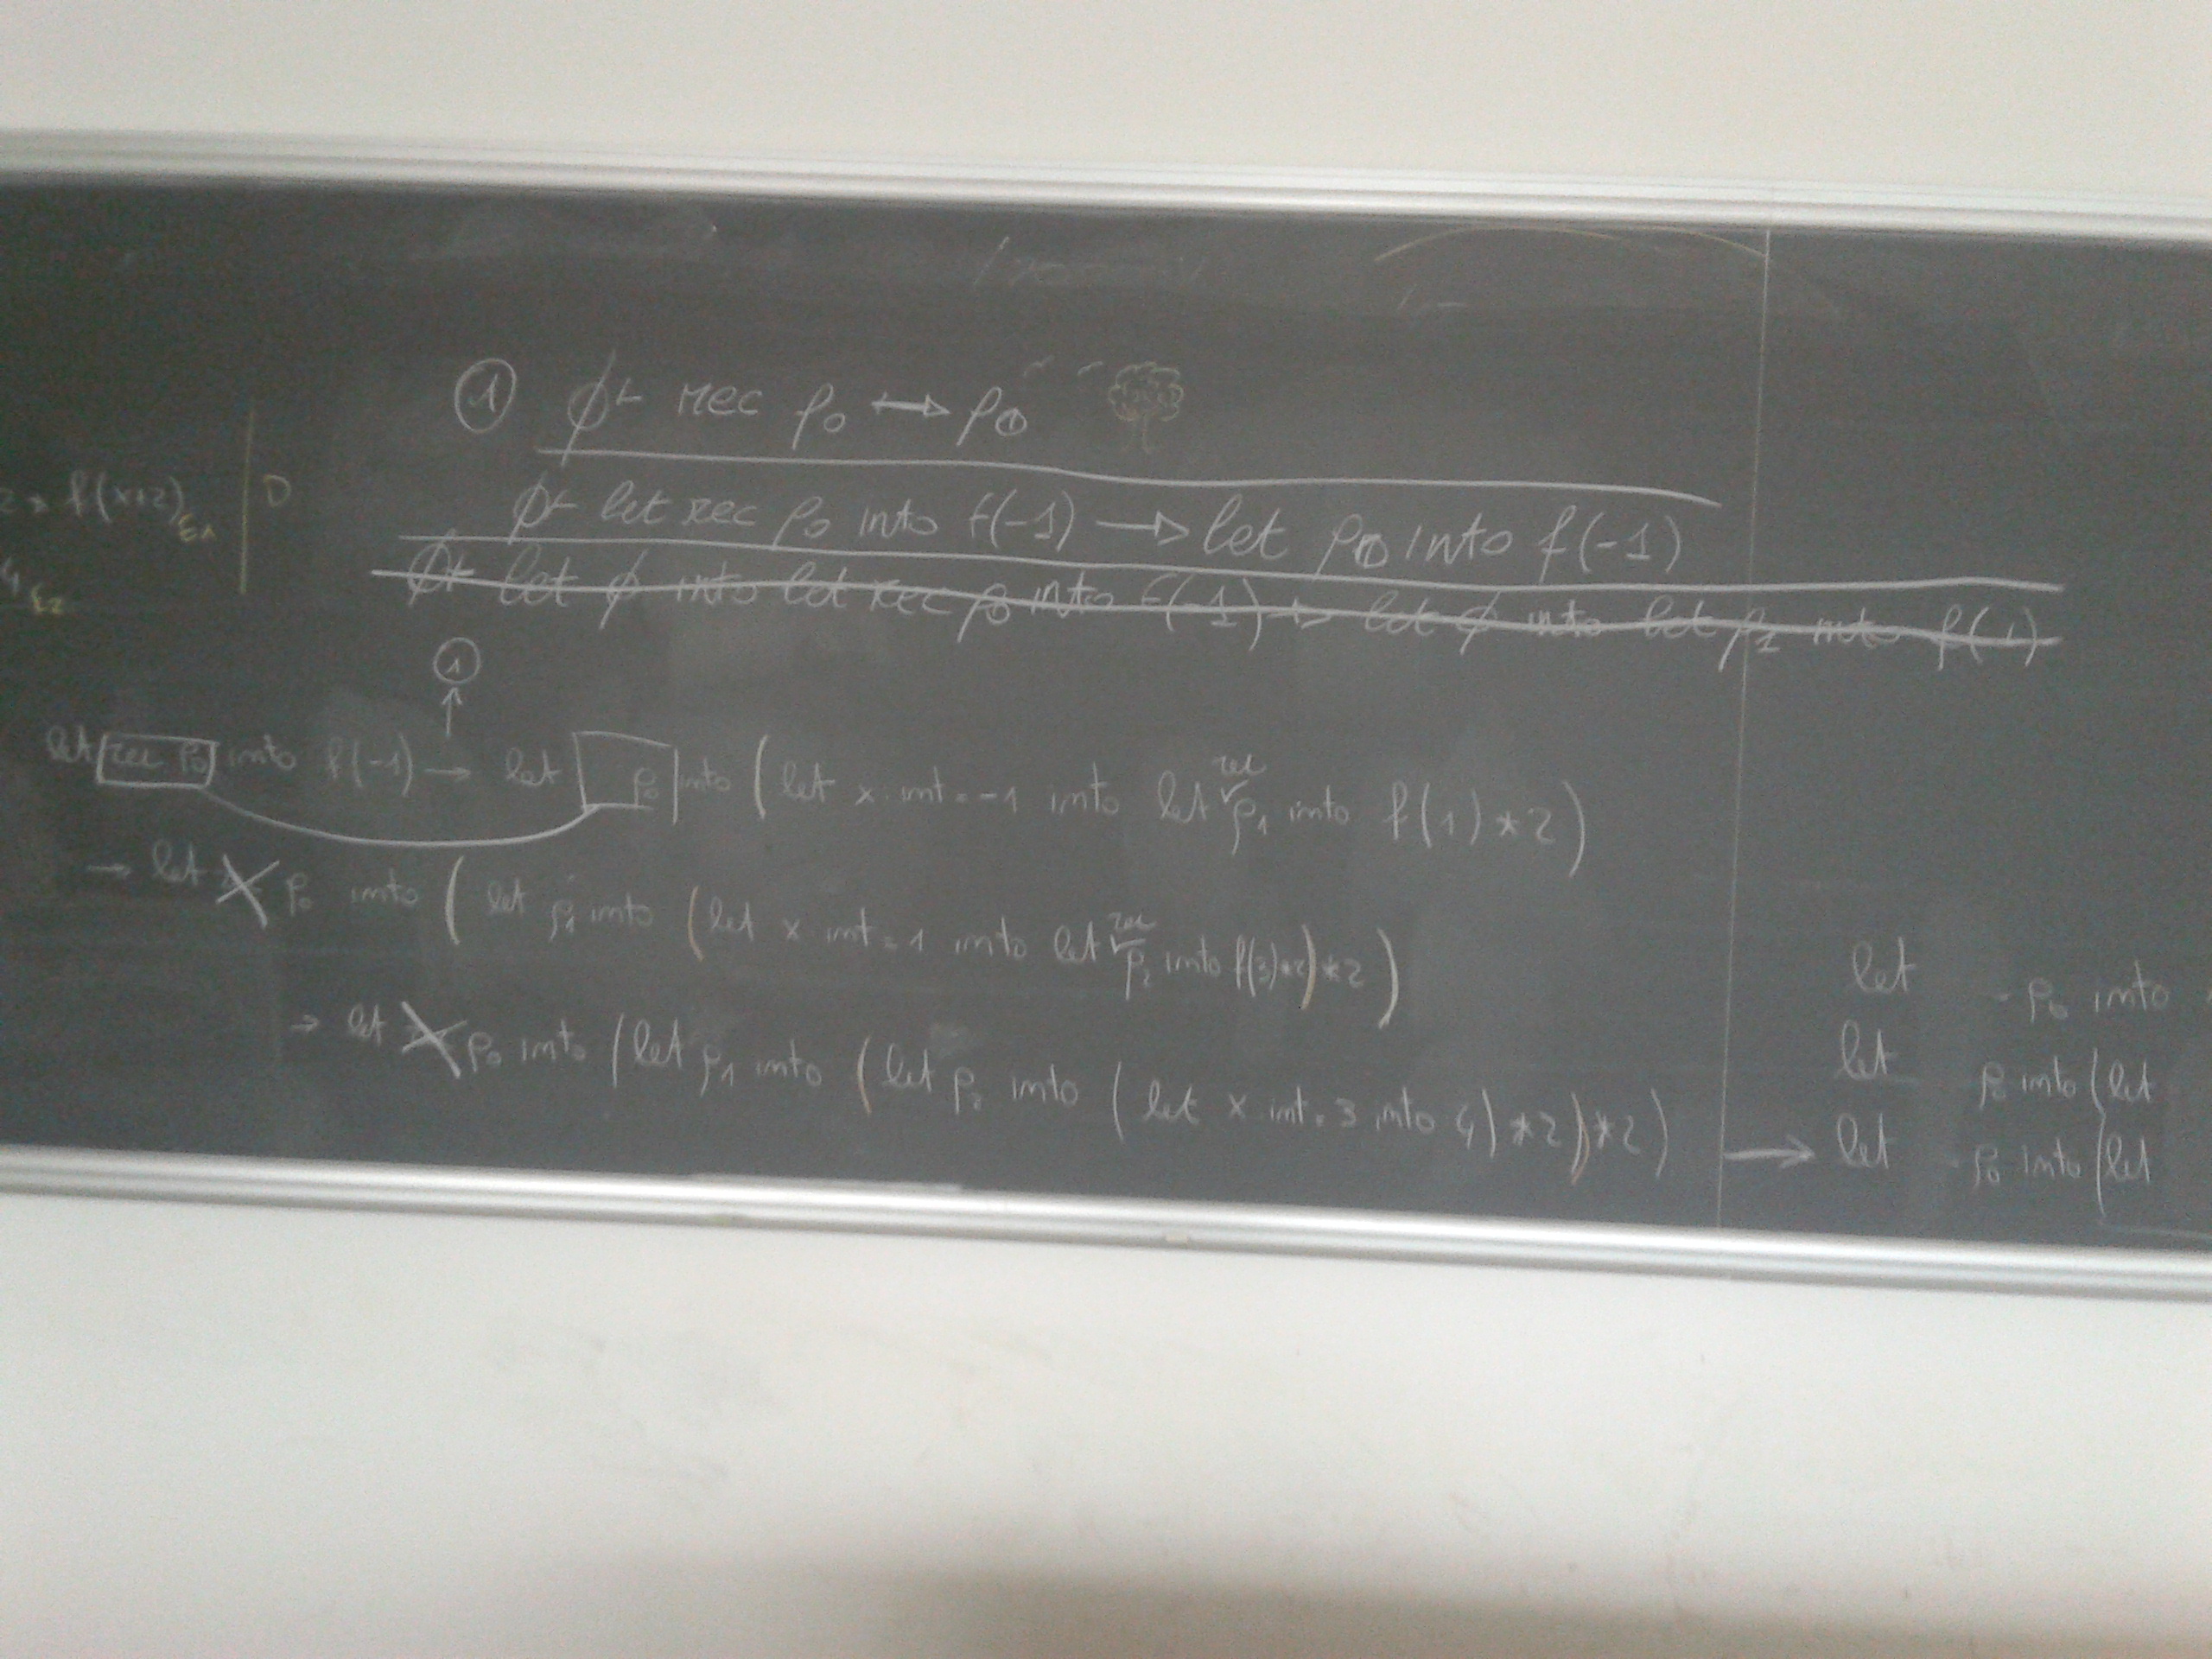 ① ∅⊢ rec ρ₀ ↔ ρ₀
2 * f(x+2) E₁ | D
∅⊢ let rec ρ₀ into f(-1) → let ρ₀ into f(-1)
4 E₂
∅⊢ let ∅ into let rec ρ₀ into f(-1) → let ∅ into let ρ₁ into f(-1)
①
↑
let rec ρ₀ into f(-1) → let ρ₀ into (let x:int=-1 into let rec ρ₁ into f(1)*2)
→ let ρ₀ into (let ρ₁ into (let x int=1 into let rec ρ₂ into f(3)*2)*2)
→ let ρ₀ into (let ρ₁ into (let ρ₂ into (let x int=3 into 4)*2)*2)
let ρ₀ into
let ρ₀ into (let
→ let ρ₀ into (let